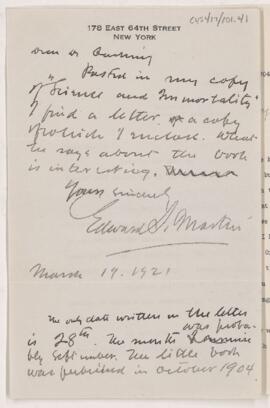 178 EAST 64TH STREET
NEW YORK
Dear Dr Cushing
Pasted in my copy
of "Science and Immortality"
I find a letter, a copy
of which I enclose. What
he says about the book
is interesting.
Yours sincerely
Edward S. Martin
March 19. 1921
The only date written in the letter
is 28th. The month was proba-
bly September. The little book
was published in October 1904